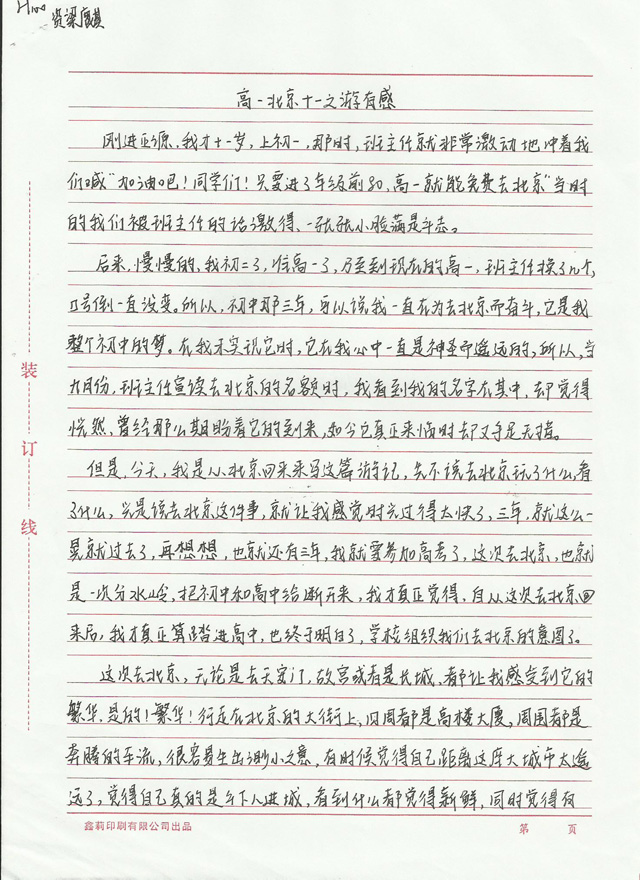 高一北京十一之游有感
刚进正源,我才十一岁,上初一,那时,班主任就非常激动地冲着我
们喊“加油吧!同学们!只要进了年级前80,高一就能免费去北京”当时
的我们被班主任的话激得、一张张小脸满是斗志。
后来,慢慢的,我初二了,准高一了,乃至到现在的高一,班主任换了几个,
口号倒一直没变。所以,初中那三年,可以说我一直在为去北京而奋斗,它是我
整个初中的梦。在我未实现它时,它在我心中一直是神圣而遥远的,所以,当
九月份,班主任宣读去北京的名额时,我看到我的名字在其中,却觉得
恍然,曾经那么期盼着它的到来,如今它真正来临时却又手足无措。
但是,今天,我是从北京回来来写这篇游记,先不谈去北京玩了什么,看
了什么,光是谈去北京这件事,就让我感觉时光过得太快了,三年,就这么一
晃就过去了,再想想,也就还有三年,我就要参加高考了,这次去北京,也就
是一次分水岭,把初中和高中给断开来,我才真正觉得,自从这次去北京回
来后,我才真正算踏进高中,也终于明白了,学校组织我们去北京的意图了。
这次去北京,无论是去天安门,故宫或者是长城,都让我感受到它的
繁华,是的!繁华!行走在北京的大街上,四周都是高楼大厦,周围都是
奔腾的车流,很容易生出渺小之意,有时候觉得自己距离这座大城市太遥
远了,觉得自己真的是乡下人进城,看到什么都觉得新鲜,同时觉得有
装
订
线
鑫莉印刷有限公司出品
第 页